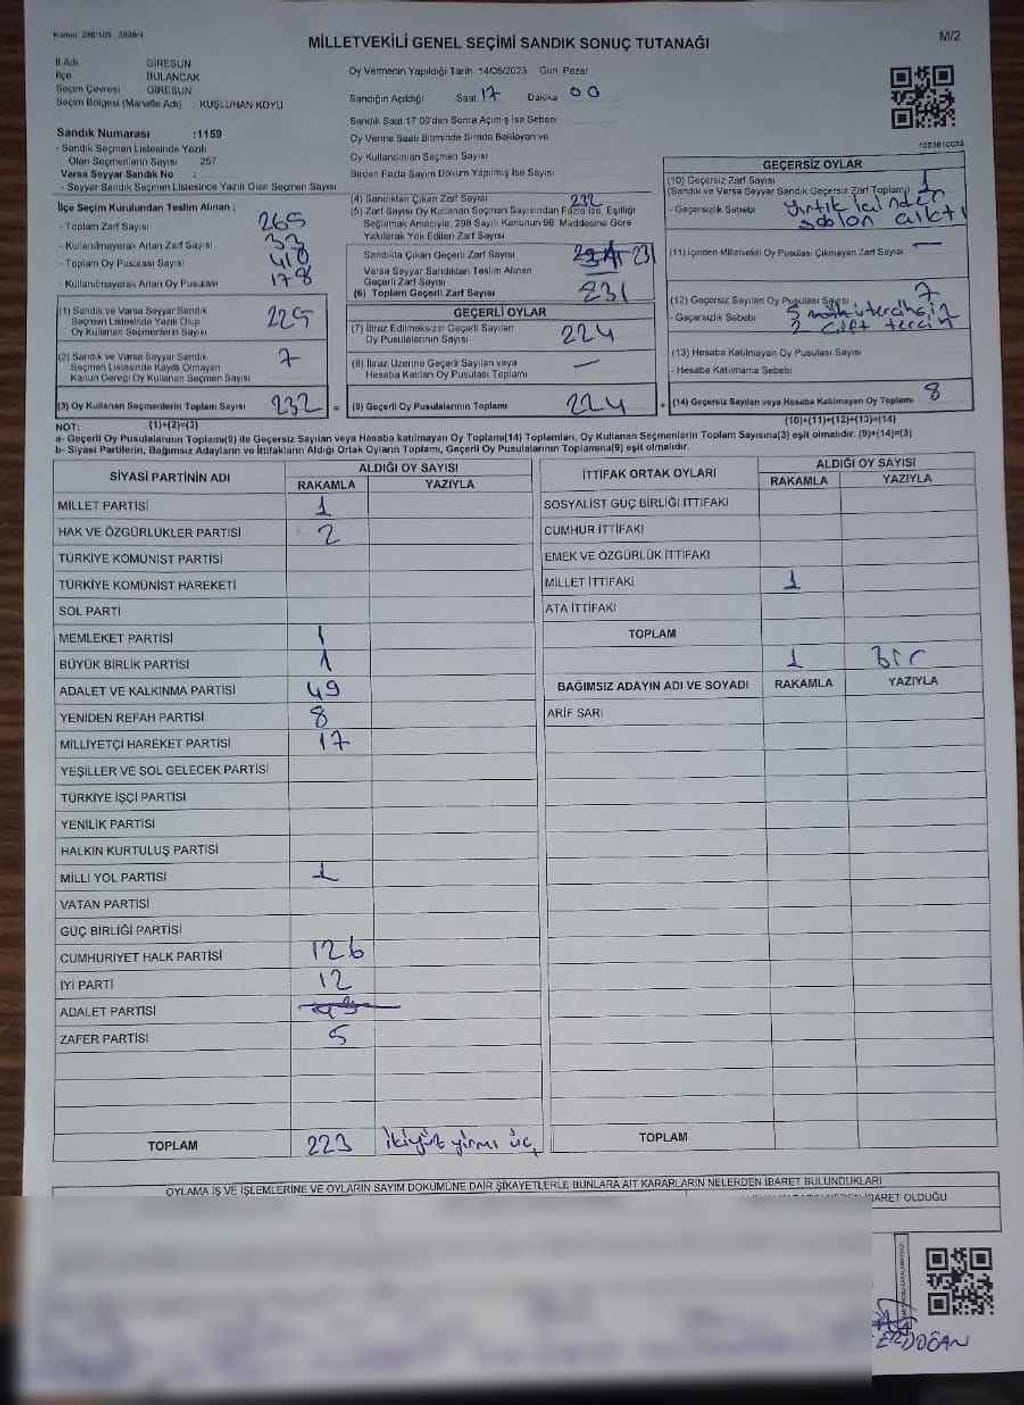 M/2
MİLLETVEKİLİ GENEL SEÇİMİ SANDIK SONUÇ TUTANAĞI
İl Adı GİRESUN
İlçe BULANCAK
Seçim Çevresi GİRESUN
Seçim Bölgesi (Mahalle Adı) KUŞLUHAN KÖYÜ
Sandık Numarası :1159
- Sandık Seçmen Listesinde Yazılı
Olan Seçmenlerin Sayısı 257
Varsa Seyyar Sandık No :
- Seyyar Sandık Seçmen Listesinde Yazılı Olan Seçmen Sayısı
Oy Vermenin Yapıldığı Tarih 14/05/2023 Gün Pazar
Sandığın Açıldığı Saat 17 Dakika 00
Sandık Saat 17:00'den Sonra Açılmış İse Sebebi
Oy Verme Saati Bitiminde Sırada Bekleyen ve
Oy Kullandırılan Seçmen Sayısı
Birden Fazla Sayım Döküm Yapılmış İse Sayısı
İlçe Seçim Kurulundan Teslim Alınan :
- Toplam Zarf Sayısı 265
- Kullanılmayarak Artan Zarf Sayısı 33
- Toplam Oy Pusulası Sayısı 410
- Kullanılmayarak Artan Oy Pusulası 178
(1) Sandık ve Varsa Seyyar Sandık
Seçmen Listesinde Yazılı Olup
Oy Kullanan Seçmenlerin Sayısı 225
(2) Sandık ve Varsa Seyyar Sandık
Seçmen Listesinde Kaydı Olmayan
Kanun Gereği Oy Kullanan Seçmen Sayısı 7
(3) Oy Kullanan Seçmenlerin Toplam Sayısı 232 =
(1)+(2)=(3)
(4) Sandıktan Çıkan Zarf Sayısı 232
(5) Zarf Sayısı Oy Kullanan Seçmen Sayısından Fazla İse, Eşitliği
Sağlamak Amacıyla, 298 Sayılı Kanunun 98. Maddesine Göre
Yakılarak Yok Edilen Zarf Sayısı
Sandıkta Çıkan Geçerli Zarf Sayısı 231
Varsa Seyyar Sandıktan Teslim Alınan
Geçerli Zarf Sayısı
(6) Toplam Geçerli Zarf Sayısı 231
GEÇERLİ OYLAR
(7) İtiraz Edilmeksizin Geçerli Sayılan
Oy Pusulalarının Sayısı 224
(8) İtiraz Üzerine Geçerli Sayılan veya
Hesaba Katılan Oy Pusulası Toplamı —
(9) Geçerli Oy Pusulalarının Toplamı 224 +
GEÇERSİZ OYLAR
(10) Geçersiz Zarf Sayısı
(Sandık ve Varsa Seyyar Sandık Geçersiz Zarf Toplamı) 1
- Geçersizlik Sebebi Yırtık içinden
şablon çıktı
(11) İçinden Milletvekili Oy Pusulası Çıkmayan Zarf Sayısı —
(12) Geçersiz Sayılan Oy Pusulası Sayısı 7
- Geçersizlik Sebebi 5
2 çift tercih
(13) Hesaba Katılmayan Oy Pusulası Sayısı
- Hesaba Katılmama Sebebi
(14) Geçersiz Sayılan veya Hesaba Katılmayan Oy Toplamı 8
(10)+(11)+(12)+(13)=(14)
NOT:
a- Geçerli Oy Pusulalarının Toplamı(9) ile Geçersiz Sayılan veya Hesaba katılmayan Oy Toplamı(14) Toplamları, Oy Kullanan Seçmenlerin Toplam Sayısına(3) eşit olmalıdır. (9)+(14)=(3)
b- Siyasi Partilerin, Bağımsız Adayların ve İttifakların Aldığı Ortak Oyların Toplamı, Geçerli Oy Pusulalarının Toplamına(9) eşit olmalıdır.
SİYASİ PARTİNİN ADI
ALDIĞI OY SAYISI
RAKAMLA YAZIYLA
MİLLET PARTİSİ 1
HAK VE ÖZGÜRLÜKLER PARTİSİ 2
TÜRKİYE KOMÜNİST PARTİSİ
TÜRKİYE KOMÜNİST HAREKETİ
SOL PARTİ
MEMLEKET PARTİSİ 1
BÜYÜK BİRLİK PARTİSİ 1
ADALET VE KALKINMA PARTİSİ 49
YENİDEN REFAH PARTİSİ 8
MİLLİYETÇİ HAREKET PARTİSİ 17
YEŞİLLER VE SOL GELECEK PARTİSİ
TÜRKİYE İŞÇİ PARTİSİ
YENİLİK PARTİSİ
HALKIN KURTULUŞ PARTİSİ
MİLLİ YOL PARTİSİ 1
VATAN PARTİSİ
GÜÇ BİRLİĞİ PARTİSİ
CUMHURİYET HALK PARTİSİ 126
İYİ PARTİ 12
ADALET PARTİSİ
ZAFER PARTİSİ 5
TOPLAM 223 ikiyüz yirmi üç
İTTİFAK ORTAK OYLARI
ALDIĞI OY SAYISI
RAKAMLA YAZIYLA
SOSYALİST GÜÇ BİRLİĞİ İTTİFAKI
CUMHUR İTTİFAKI
EMEK VE ÖZGÜRLÜK İTTİFAKI
MİLLET İTTİFAKI 1
ATA İTTİFAKI
TOPLAM
1 bir
BAĞIMSIZ ADAYIN ADI VE SOYADI RAKAMLA YAZIYLA
ARİF SARI
TOPLAM
OYLAMA İŞ VE İŞLEMLERİNE VE OYLARIN SAYIM DÖKÜMÜNE DAİR ŞİKAYETLERLE BUNLARA AİT KARARLARIN NELERDEN İBARET BULUNDUKLARI
İBARET OLDUĞU
ERDOĞAN